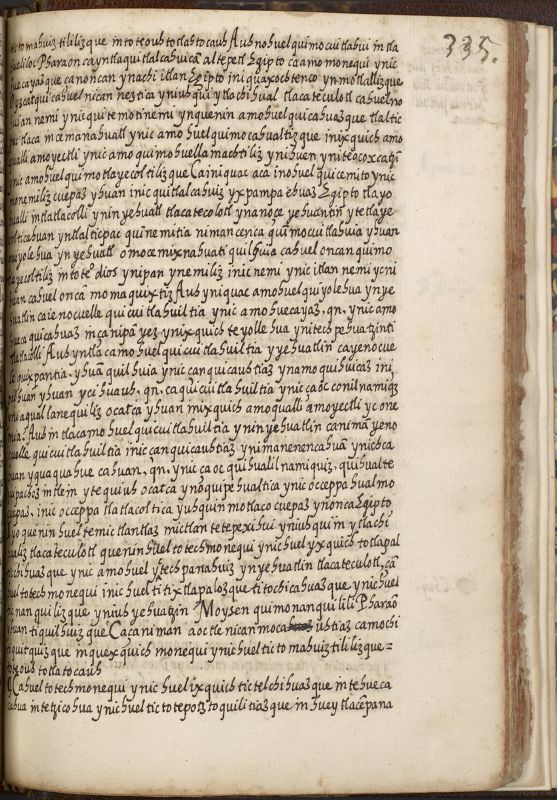 335.
tic to mahuiz tililizque in to teouh to tlahtocauh Auh no huel quimocuitlahui in tla
Pharaon ca yn tlaqui tlalcahuiā altepetl Egipto ca amo monequi ynic
yuecayazque canoncan ynachi itlan Egipto ini quaxochtenco yn motlallizque
ca huel nican neztica yniuh qui ytlachihual tlacatecolotl ca huel no
can nemi ynic qui temotinemi yn quenin amo huel quicahuazque tlaltic
tlaca in cemanahuatl ynic amo huel quimocahualtizque inixquich amo
qualli amo yectli ynic amo quimohuellamachtiliz yn ihuen yni teocoxcatzī
ynic amo huel quimotlayecoltilizque Ca iniquac aca ino huel quicemito ynic
monemiliz cuepaz yhuan inic quitlalcahuiz yxpampa ehuaz Egipto tlayo
hualli in tlatlacolli yn in yehuatl tlacatecolotl ynanoce yehuantin y tetlaye
colticahuan yn tlalticpac quinemitia niman cenca quīmocuitlahuia yhuan
quiyolehua yn yehuatl omocemixnahuati quilhuia ca huel oncan quimo
tlayecoltiliz in toteº dios ynipan ynemiliz inic nemi ynic itlan nemi ycni
huan ca huel oncā momaquixtiz Auh yniquac amo huel quiyolehua ynye
huatlin caie nocuelle quicuitlahuiltia ynic amo huecayaz, qn, ynic amo
hueca quicahuaz in canipā yez ynixquich teyollehua ynitech pehuatzinti
tlatlacolli Auh yntla camo huel quicuitlahuiltia yyehuatlin ca yenocue
le quixpantia, yhuā quilhuia ynic can quicauhtiaz ynamo quihuicaz ini
pilhuan yhuan ycihuauh, qn, ca quicuitlahuiltia ynic caoc conilnamiqz
yni aqualla nequiliz ocatca yhuan inixquich amo qualli amo yectli yc one
nca? Auh intlacamo huel quicuitlahuiltia yn in yehuatlin canimā yeno
cuelle quicuitlahuiltia inic can quicauhtiaz yni manenencahuā ynichca
huan yquaquahuecahuan, qn, ynic ca oc quihualilnamiquiz, quihualte
in tlein ytequiuh ocatca ynoquipehualtica ynic occeppa hualmo
cuepaz, inic occeppa tlatlacoltica yuhquin motlaco cuepaz ynonca Egipto
yoquenin huel temictlantlaz mictlan tetepexihui yniuh quim ytlachi
hualiz tlacatecolotl quenin huel totech monequi ynic huel yxquich totlapal
ticchihuazque ynic amo huel ytech panahuiz yn yehuatlin tlacatecolotl, cā
huel totech monequi inic huel titixtlapalozque titochicahuazque ynic huel
tic nanquilizque yniuh yehuatzin Moysen quimonanquilili Pharaō
yhuan tiquilhuizque Ca caniman aoctle nican mocauhtiaz camo chi
tiquitquizque in quexquich monequi ynic huel tic to mahuiztililizque =
to teouh totlatocauh
Ca huel totech monequi ynic huel ixquich tictelchihuazque in tehueca
cahua in tetzicohua ynic huel tic totepotztoquilitiazque in huey tlacēpana